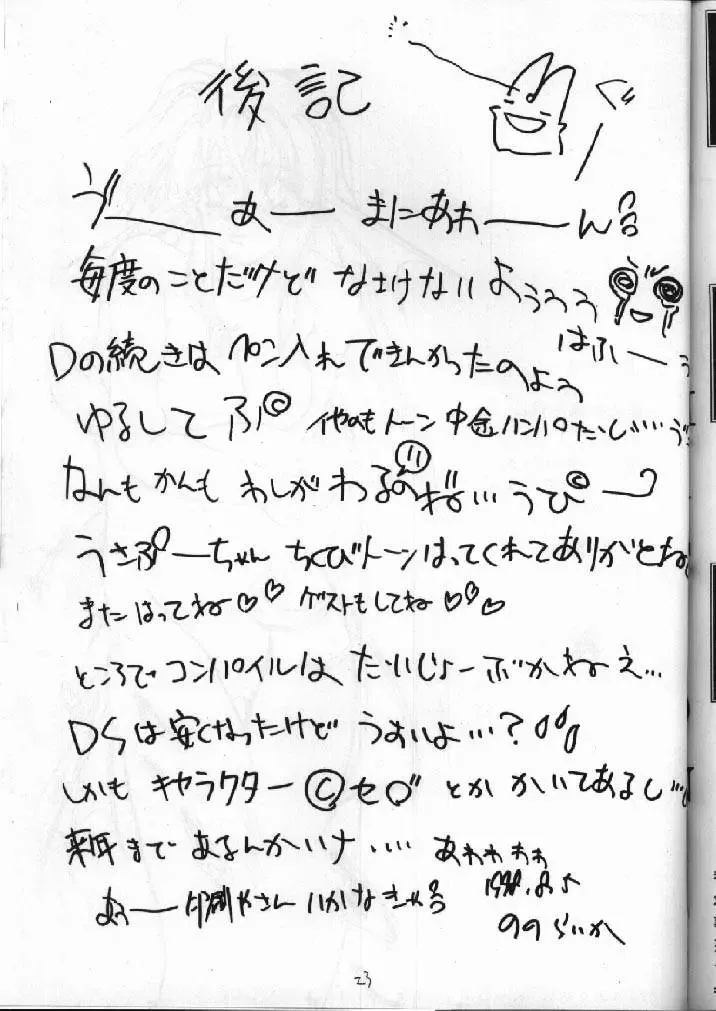 後記
ゔ——あ—— まにあわ——ん
毎度のことだけど なさけないようううう
Dの続きは ペン入れできんかったのよう
はふーう
ゆるしてぷ© イヤのもトーン中途ハンパだし…う
なんもかんも わしがわるい
のね…うぴ©ー
うさぷーちゃん ちくびトーンはってくれてありがとね
またはってね♡♡ ゲストもしてね♡♡♡
ところでコンパイルは だいじょーぶかねえ…
DSは安くなったけど うおいよ…?
しかも キャラクター©セガ とか かいてあるし…
来年まで あるんかいナ…‥ あわわわわ
あぅ——印刷やさん いかなきゃ
23